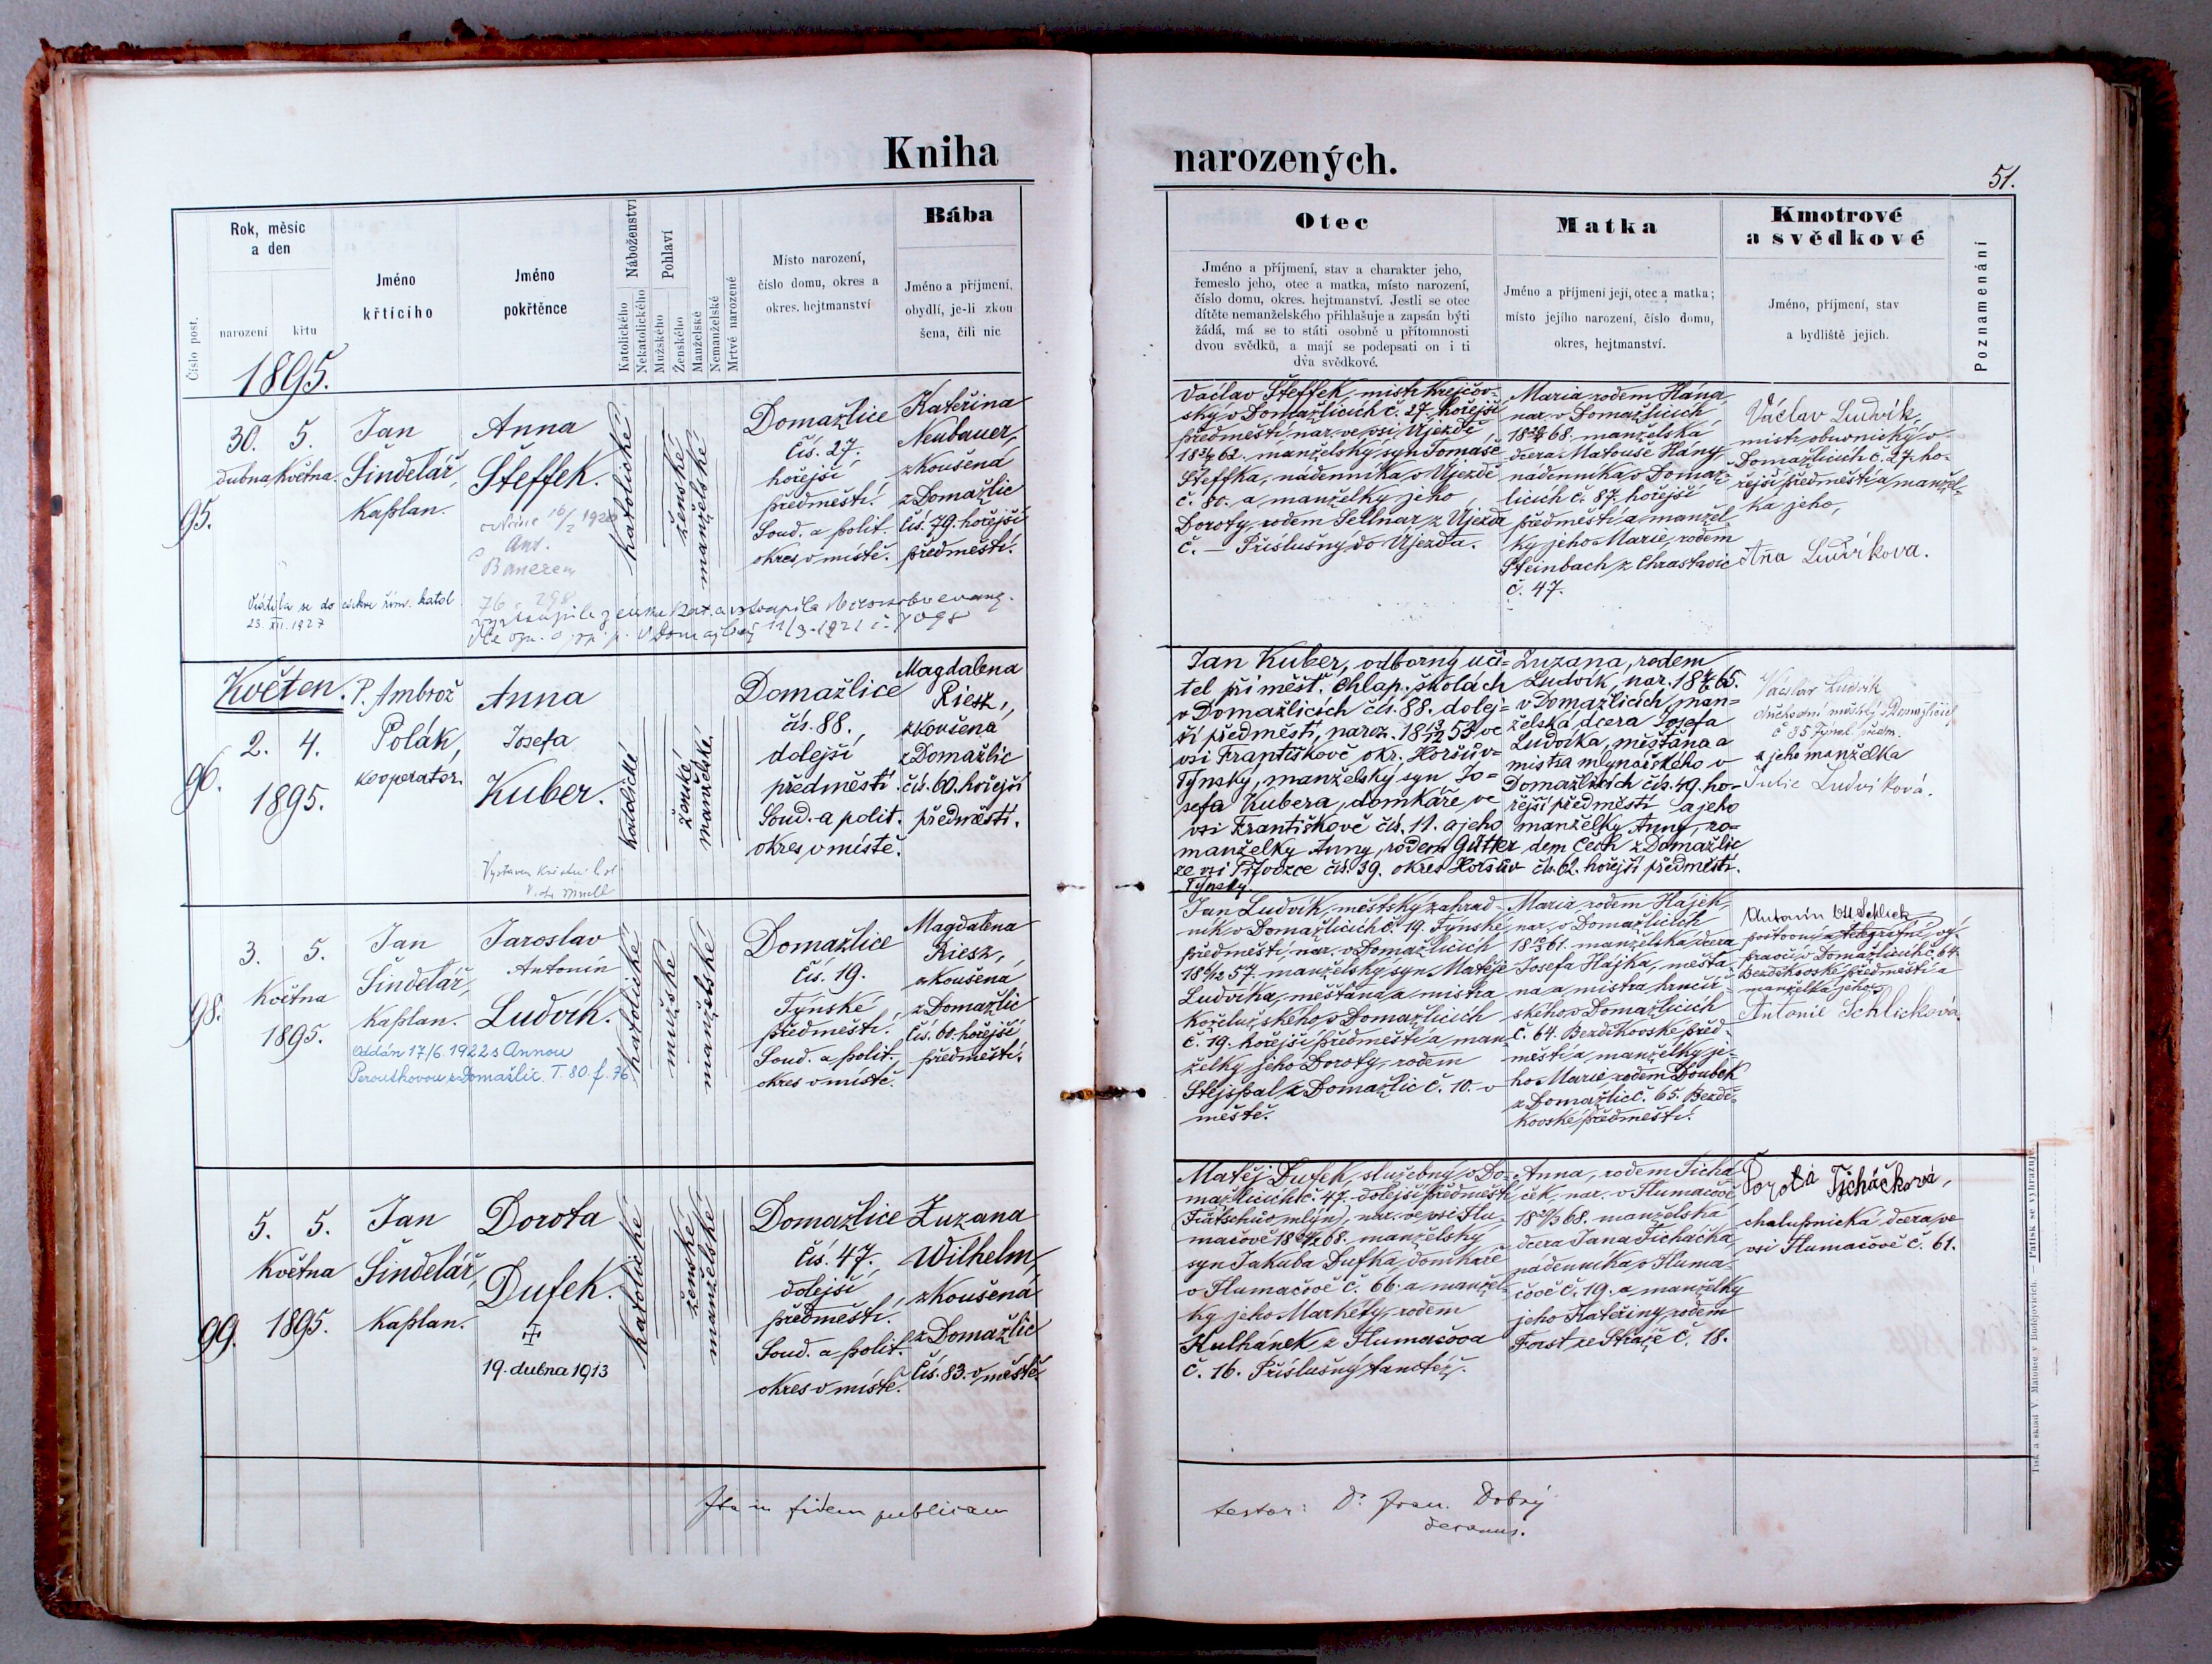 Kniha
narozených.
51.
Číslo post.
Rok, měsíc
a den
narození
křtu
Jméno
křtícího
Jméno
pokřtěnce
Náboženství
Katolického
Nekatolického
Pohlaví
Mužského
Ženského
Manželské
Nemanželské
Mrtvě narozené
Místo narození,
číslo domu, okres a
okres. hejtmanství
Bába
Jméno a příjmení,
obydlí, je-li zkou
šena, čili nic
Otec
Jméno a příjmení, stav a charakter jeho,
řemeslo jeho, otec a matka, místo narození,
číslo domu, okres. hejtmanství. Jestli se otec
dítěte nemanželského přihlašuje a zapsán býti
žádá, má se to státi osobně u přítomnosti
dvou svědků, a mají se podepsati on i ti
dva svědkové.
Matka
Jméno a příjmení její, otec a matka;
místo jejího narození, číslo domu,
okres, hejtmanství.
Kmotrové
a svědkové
Jméno, příjmení, stav
a bydliště jejich.
Poznamenání
1895.
95.
30. 5.
dubna Května.
Jan
Šindelář,
Kaplan.
Anna
Šteffek.
16/2 1920
Ant.
katolické
ženské
manželské
Domažlice
Čís. 27.
hořejší
předměstí.
Soud. a polit.
okres v místě.
Kateřina
Neubauer,
zkoušená
z Domažlic
čís. 79. hořejší
předměstí.
Vrátila se do církve řím. katol
23. XII. 1927
Václav Šteffek, mistr krejčov-
ský v Domažlicích č. 27. hořejší
předměstí, nar. ve vsi Újezdě
62. manželský syn Tomáše
Šteffka, nádenníka v Újezdě
č. 80. a manželky jeho
Doroty, rodem Sellnar z Újezda
č. — Příslušný do Újezda.
Maria rodem Hána,
nar. v Domažlicích
68. manželská
dcera Matouše Hány,
nádenníka v Domaž-
licích č. 87. hořejší
předměstí a manžel-
ky jeho Marie, rodem
Steinbach z Chrastavic
č. 47.
Václav Ludvík,
mistr obuvnický v
Domažlicích č. 27. ho-
řejší předměstí a manžel-
ka jeho,
Aña Ludvikova.
96.
Květen.
2. 4.
1895.
P. Ambrož
Polák,
kooperator.
Anna
Josefa
Kuber.
katolické
ženské
manželské.
Domažlice
čís. 88.,
dolejší
předměstí.
Soud. a polit.
okres v místě.
Magdalena
Riesz,
zkoušená
z Domažlic
čís. 60. hořejší
předměstí.
Jan Kuber, odborný uči-
tel při měšť. chlap. školách
v Domažlicích čís. 88. dolej-
ší předměstí, naroz. 18 13/12 53 ve
vsi Františkově okr. Horšův-
Týnský, manželský syn Jo-
sefa Kubera, domkáře ve
vsi Františkově čís. 11. a jeho
manželky Anny, rodem Gütter
ze vsi Přívozce čís. 39. okres Horšův
Týnský.
Zuzana, rodem
Ludvík, nar. 65.
v Domažlicích, man-
želská dcera Josefa
Ludvíka, měšťana a
mistra mlynářského v
Domažlicích čís. 49. ho-
řejší předměstí a jeho
manželky Anny, ro-
dem Čech z Domažlic
čís. 62. hořejší předměstí.
Václav Ludvík
důchodní městský v Domažlicích
č 35 Týnsk. předm.
a jeho manželka
Julie Ludvíková.
98.
3. 5.
Května
1895.
Jan
Šindelář,
Kaplan.
Jaroslav
Antonín
Ludvík.
Oddán 17/6. 1922 s Annou
Peroutkovou z Domažlic. T. 80. f. 76
katolické
mužské
manželské
Domažlice
Čís. 19.
Týnské
předměstí.
Soud. a polit.
okres v místě.
Magdalena
Riesz,
zkoušená
z Domažlic
Čís. 60. hořejší
předměstí.
Jan Ludvík, městský zahrad-
ník v Domažlicích č. 19. Týnské
předměstí, nar. v Domažlicích
57. manželský syn Matěje
Ludvíka, měšťana a mistra
koželužského v Domažlicích
č. 19. hořejší předměstí a man-
želky jeho Doroty, rodem
Stejspal z Domažlic č. 10. v
městě.
Maria rodem Hájek,
nar. v Domažlicích
61. manželská dcera
Josefa Hájka, měšťa-
na a mistra hrnčíř-
ského v Domažlicích
č. 64. Bezděkovské před-
městí a manželky je-
ho Marie, rodem Doubek
z Domažlic č. 65. Bezdě-
kovské předměstí.
Antonín Schlick
poštovní a telegrafní vý-
pravčí v Domažlicích č. 64
Bezděkovské předměstí a
manželka jeho
Antonie Schlicková.
99.
5. 5.
Května
1895.
Jan
Šindelář,
Kaplan.
Dorota
Dufek.
19. dubna 1913
katolické
ženské
manželské
Domažlice
Čís. 47.
dolejší
předměstí.
Soud. a polit.
okres v místě.
Zuzana
Wilhelm,
zkoušená
z Domažlic
Čís. 83. v městě.
Matěj Dufek, služebný v Do-
mažlicích č. 47. dolejší předměstí
mlýn), nar. ve vsi Tlu-
mačově 68. manželský
syn Jakuba Dufka, domkáře
v Tlumačově č. 66. a manžel-
ky jeho Markéty, rodem
Kulhánek z Tlumačova
č. 16. Příslušný tamtéž.
Anna, rodem Ticha-
ček, nar. v Tlumačově
68. manželská
dcera Jana Ticháčka,
nádenníka v Tluma-
čově č. 19. a manželky
jeho Kateřiny, rodem
Forst ze Stráže č. 18.
Dorota Ticháčková,
chalupnická dcera ve
vsi Tlumačově č. 61.
Ita in fidem publicam
testor: Dr. Fran. Dobrý
decanus.
Tisk a sklad V. Matouse v Budějovicích. Patisk se vyhrazuje.